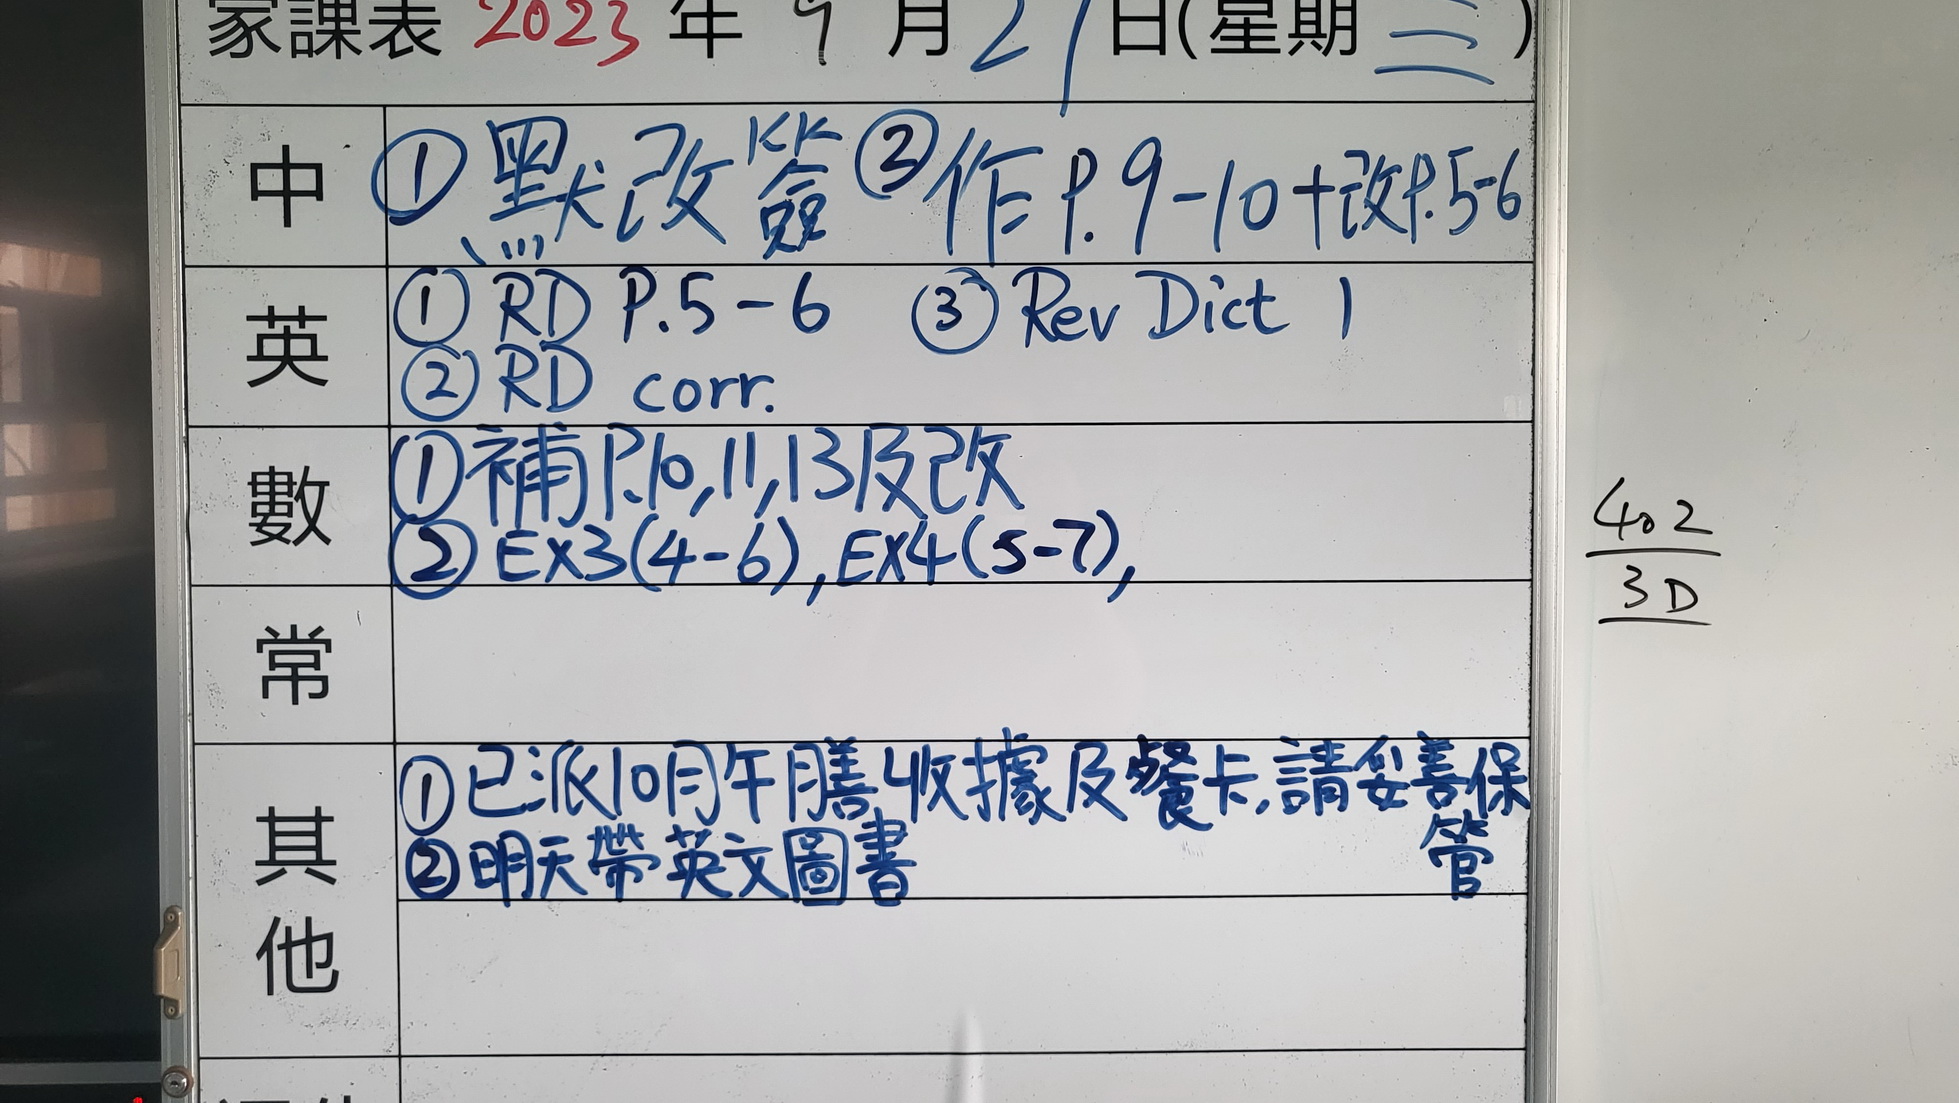 家課表 2023 年 9 月 27 日(星期 三 )
中 ① 默改簽 ② 作 P.9-10+改P.5-6
英 ① RD P.5-6 ③ Rev Dict 1
② RD corr.
數 ① 補P.10,11,13及改
② EX3(4-6), EX4(5-7),
常
其他 ① 已派10月午膳收據及餐卡,請妥善保
管
② 明天帶英文圖書
402
3D